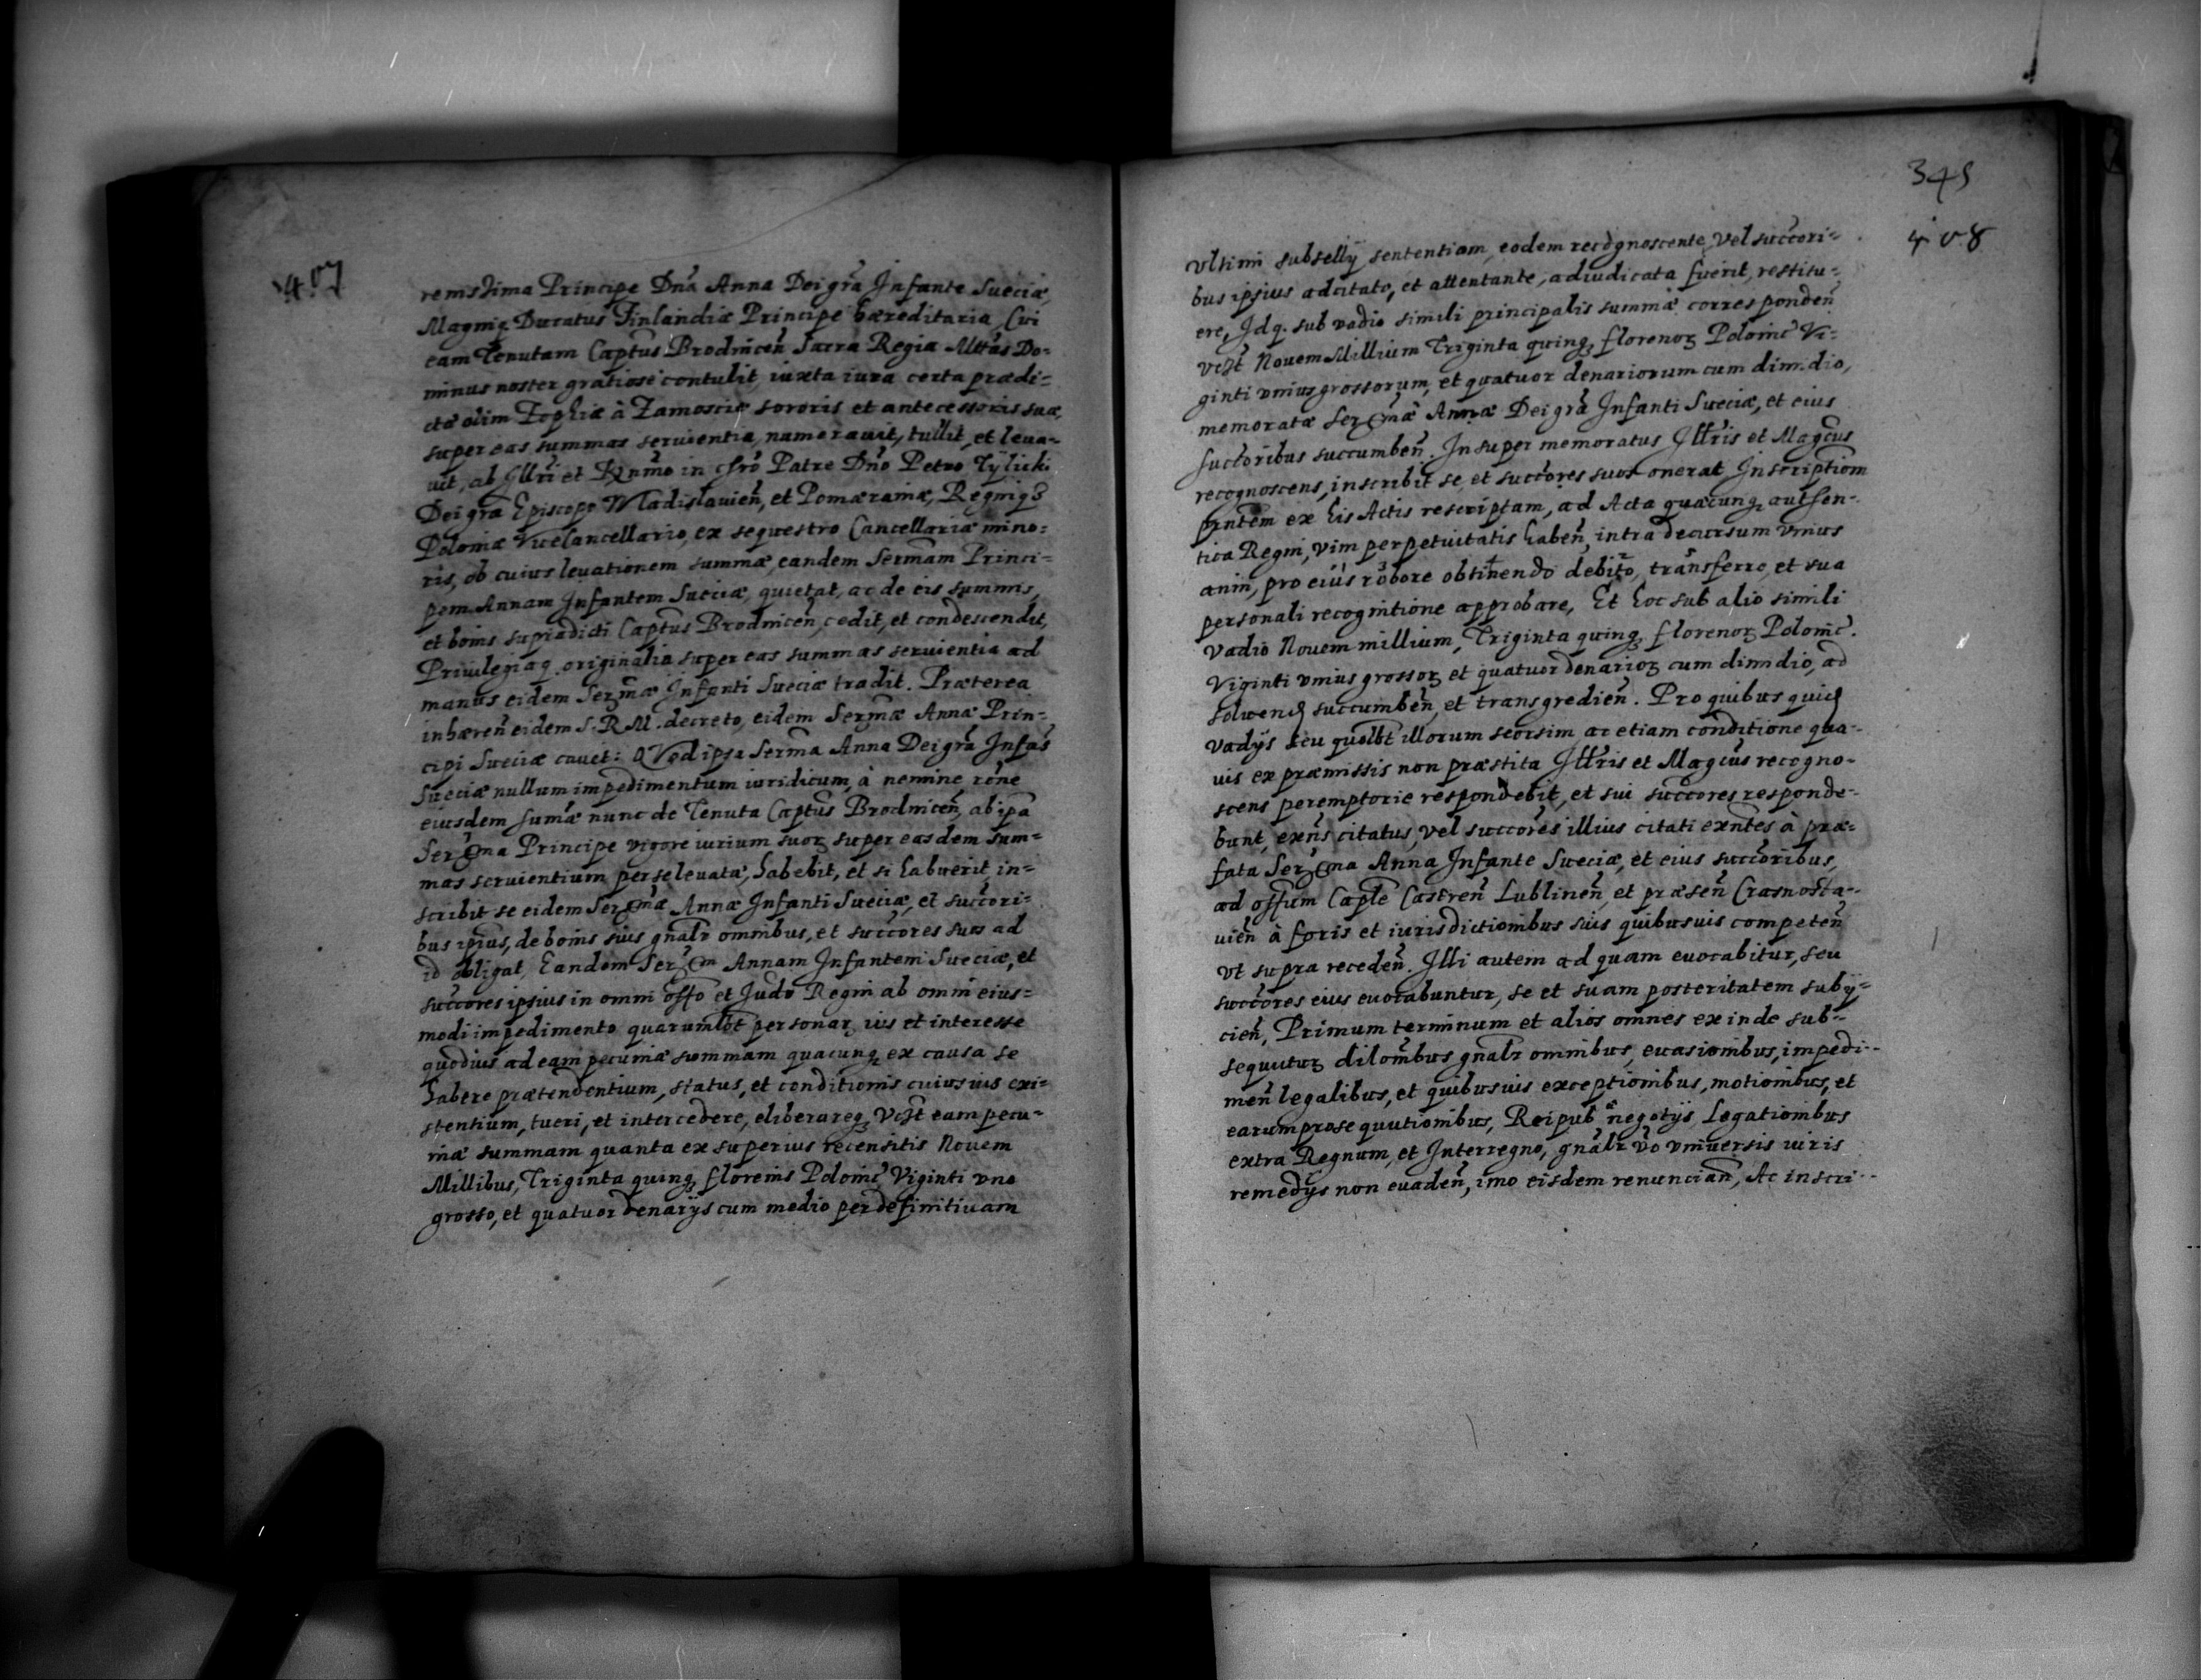 407
renissima Principe Dnã Anna Dei grã Infante Sueciæ,
Magniq Ducatus Finlandiæ Principe hæreditaria, Cui
eam Tenutam Captũs Brodnicen̄ Sacra Regia Mttãs Do=
minus noster gratiose contulit, iuxta iura certa prædi=
ctæ olim Sophiæ à Zamoscie sororis et antecessoris suæ,
super eas summas seruientia, numerauit, tullit, et leua=
uit, ab Illri et Rñdmo in chrõ Patre Dnõ Petro Tÿlicki
Dei grã Episcopo Wladislauien̄, et Pomæraniæ, Regniq3
Poloniæ ViceCancellario, ex sequestro Cancellariæ mino=
ris, ob cuius leuationem summæ, eandem Sermãm Princi=
pem Annam Infantem Sueciæ, quietat, ac de eis summis,
et bonis supradicti Captũs Brodnicen̄, cedit, et condescendit,
Priuilegiaq. originalia super eas summas seruientia ad
manus eidem Serzmæ Infanti Sueciæ tradit. Præterea
inhæren̄ eidem S. R. M. decreto, eidem Serzmæ Annæ Prin=
cipi Sueciæ cauet: QVod ipsa Sermã Anna Dei grã Infãs
Sueciæ nullum impedimentum iuridicum, à nemine, rõne
eiusdem sumæ nunc de Tenuta Captũs Brodnicen̄, ab ipã
Serzma Principe vigore iurium suorz super easdem sum=
mas seruientium per se leuatæ, habebit, et si habuerit, in=
scribit se eidem Serzmæ Annæ Infanti Sueciæ, et succõri=
bus ipsius, de bonis suis gñalr omnibus, et succõres suos ad
id obligat, Eandem Serzm Annam Infantem Sueciæ, et
succõres ipsius in omni offo et Judõ Regni ab omni eius=
modi impedimento quarumlbt personarz ius et interesse
quoduis ad eam pecuniæ summam quacunq ex causa se
habere prætendentium, status, et conditionis cuiusuis exi=
stentium, tueri, et intercedere, eliberareq, Vczt eam pecu=
niæ summam quanta ex superius recensitis Nouem
Millibus, Triginta quinq florenis Polonic̄ Viginti vno
grosso, et quatuor denarÿs cum medio per definitiuam
345
408
vltimi subsellÿ sententiam, eodem recognoscente, vel succõri=
bus ipsius adcitato, et attentante, adiudicata fuerit, restitu=
ere, Idq. sub vadio simili principalis summæ corresponden̄
vczt Nouem Millium Triginta quinq florenorz Polonic̄ Vi=
ginti vnius grossorum, et quatuor denariorum cum dimidio,
memoratæ Serzmæ Annæ Dei grã Infanti Sueciæ, et eius
succõribus succumben̄. Insuper memoratus Illris et Magcus
recognoscens, inscribit se, et succõres suos onerat Inscriptiom
pñtem ex his Actis rescriptam, ad Acta quæcunq authen=
tica Regni, vim perpetuitatis haben̄, intra decursum vnius
anni, pro eius robore obtinendo debito, transferre, et sua
personali recognitione approbare, Et hoc sub alio simili
vadio Nouem millium, Triginta quinq florenorz Polonic̄.
Viginti vnius grossorz et quatuor denariorz cum dimidio, ad
soluend succumben̄, et transgredien̄. Pro quibus quid
vadÿs seu quolbt illorum seorsim, ac etiam conditione qua=
uis ex præmissis non præstita Illris et Magcus recogno=
scens peremptorie respondebit, et sui succõres responde=
bunt, exñs citatus, vel succõres illius citati exñtes à præ=
fata Serzma Anna Infante Sueciæ, et eius succõribus,
ad offum Caple Castren̄ Lublinen̄, et præsen̄ Crasnosta=
uien̄ à foris et iurisdictionibus suis quibusuis competen̄
vt supra receden̄. Illi autem ad quam euocabitur, seu
succõres eius euocabuntur, se et suam posteritatem subÿ=
cien̄, Primum terminum et alios omnes exinde sub=
sequuturz dilõnibus gñalr omnibus, euasionibus, impedi=
men̄ legalibus, et quibusuis exceptionibus, motionibus, et
earum prosequutionibus, Reipub negotÿs, Legationibus
extra Regnum, et Interregno, gñalr vo vniuersis iuris
remedÿs non euaden̄, imo eisdem renuncian̄, Ac inscri=